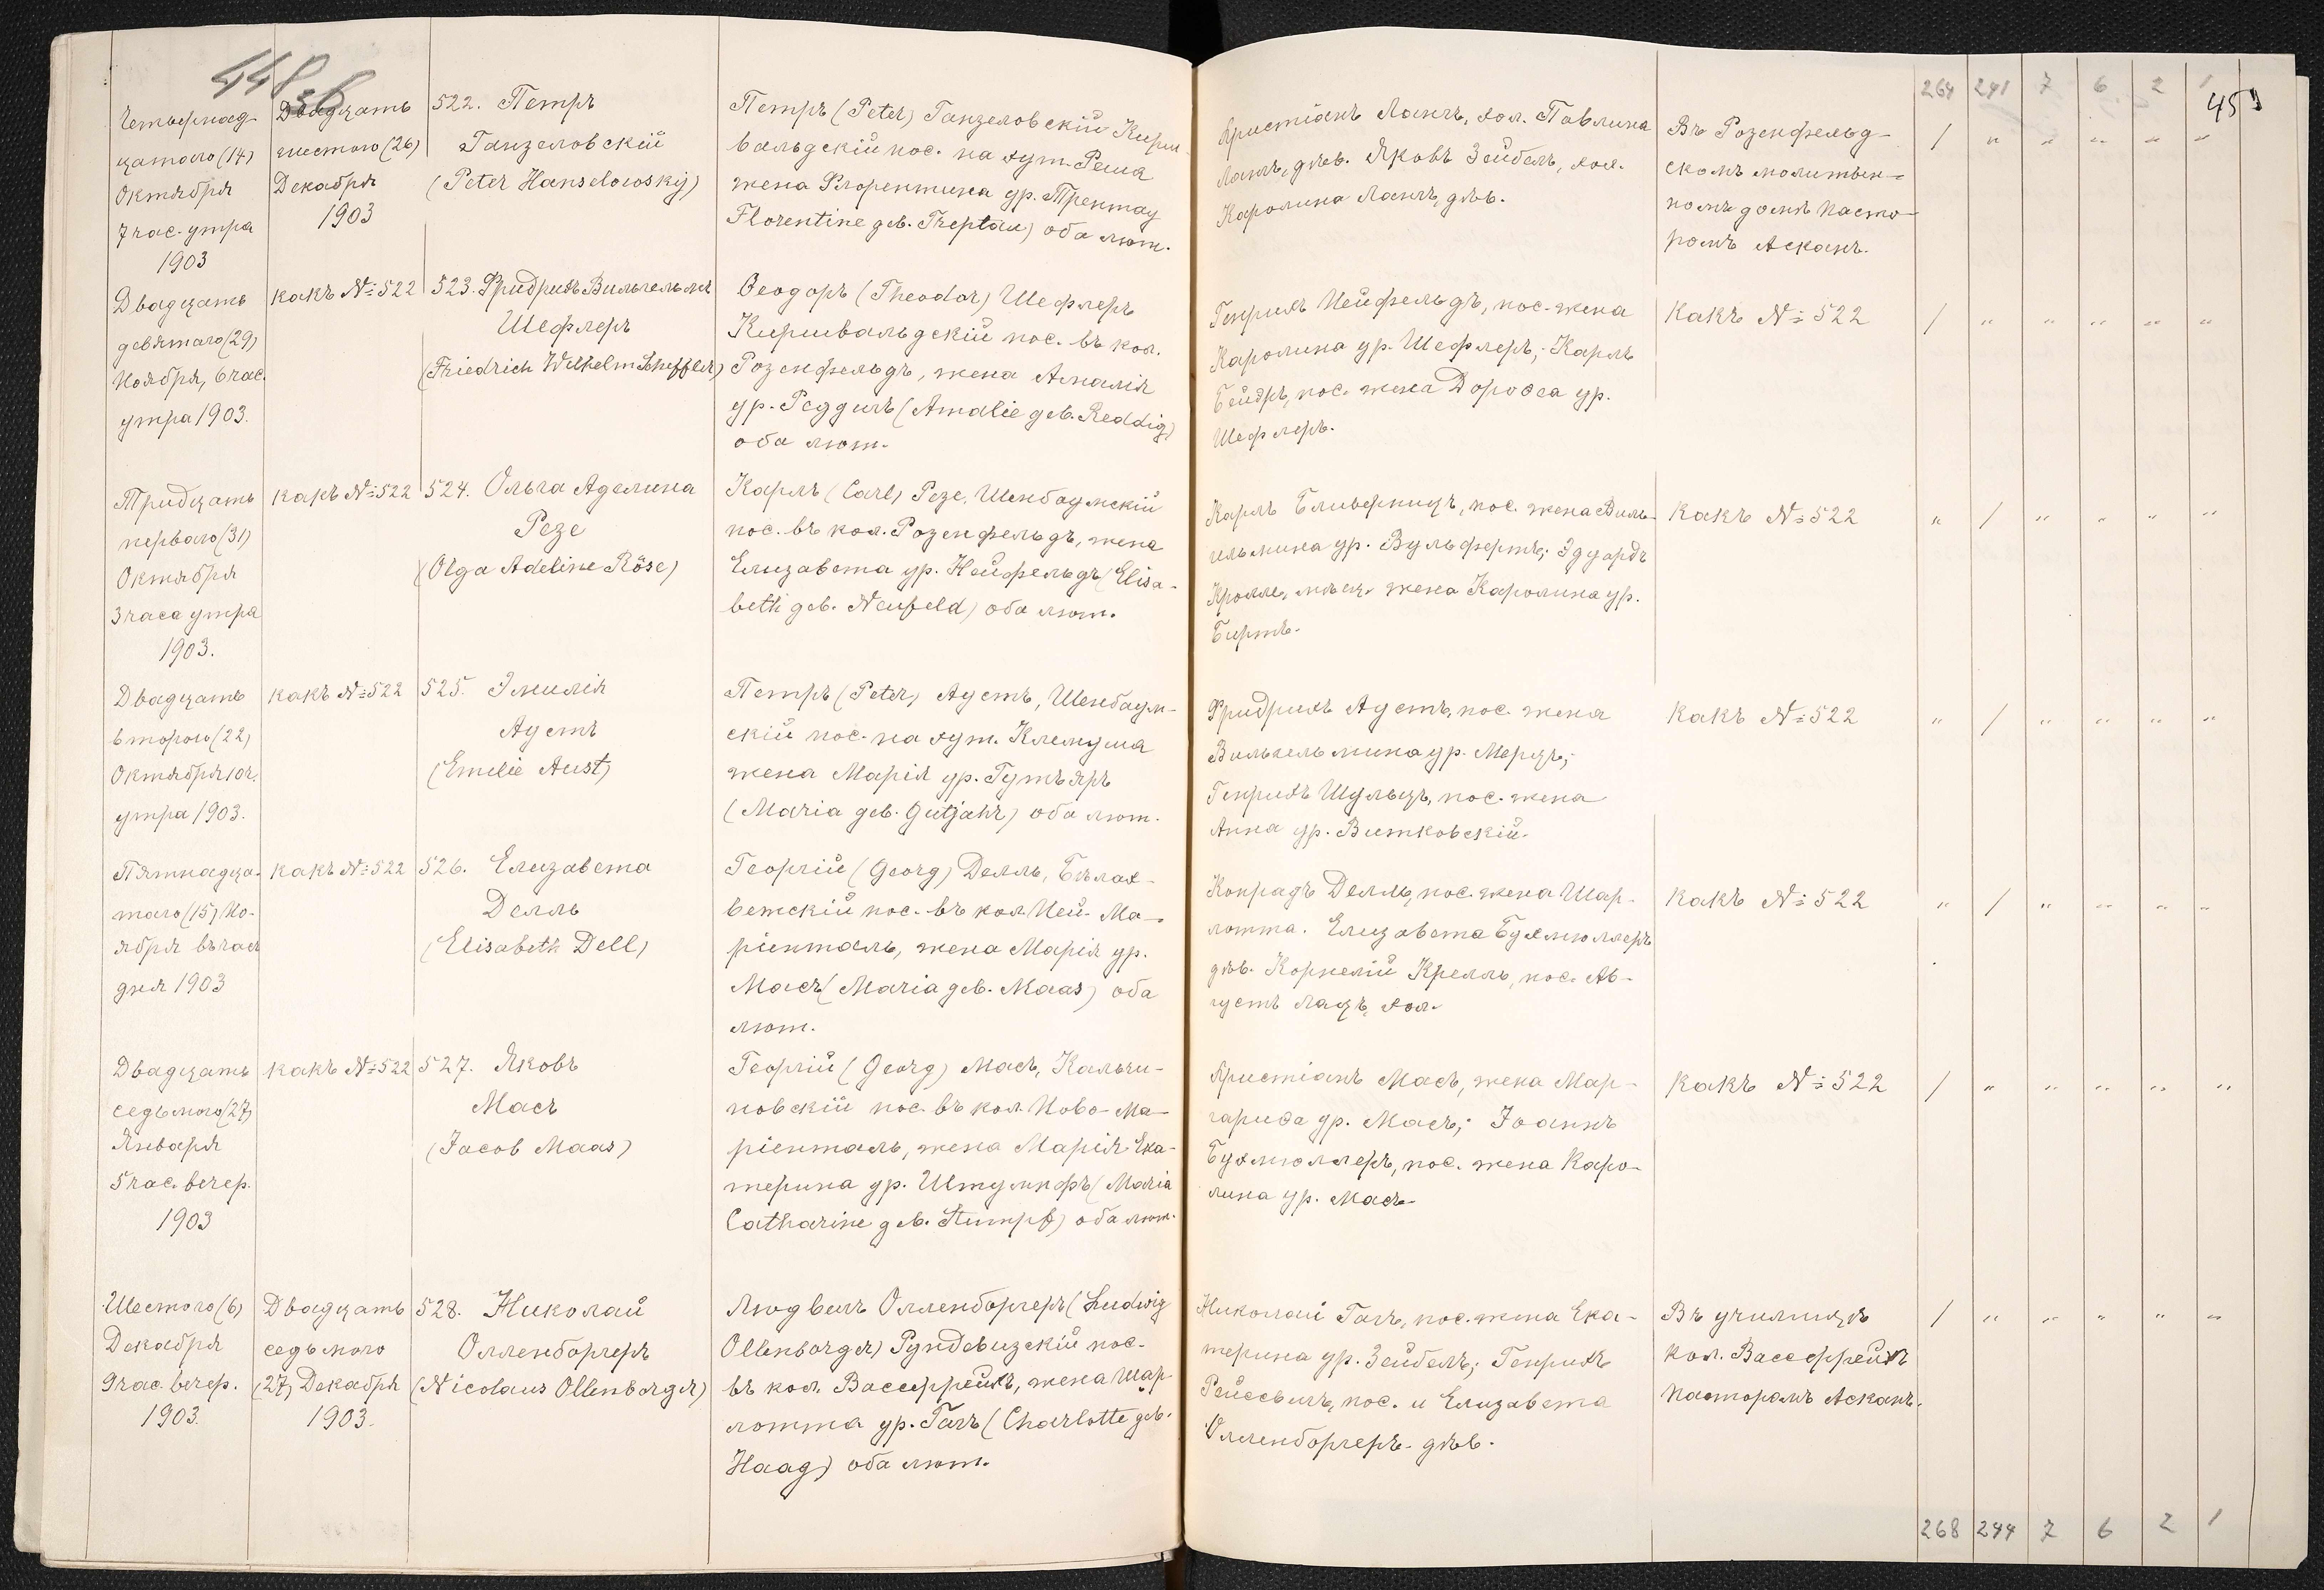 448 об
264 241 7 6 2 1
459
Четырнад-
цатого (14)
Октября
7 час. утра
1903
Двадцать
шестого (26)
Декабря
1903
522. Петръ
Ганзеловскій
(Peter Hanselowsky)
Петръ (Peter) Ганзеловскій Кирш-
вальдскій пос. на хут. Реша
жена Флорентина ур. Трептау
Florentine geb. Treptau) оба лют.
Христіанъ Лангъ, хол. Павлина
Лангъ, дѣв. Яковъ Зейбель, хол.
Каролина Лангъ, дѣв.
Въ Розенфельд-
скомъ молитвен-
номъ домѣ Пасто-
ромъ Асканъ.
/ " " " " "
Двадцать
девятаго (29)
Ноября, 6 час.
утра 1903.
какъ №522
523. Фридрихъ Вильгельмъ
Шефлеръ
(Friedrich Wilhelm Scheffler)
Ѳеодоръ (Theodor) Шефлеръ
Киршвальдскій пос. въ кол.
Розенфельдъ, жена Амалія
ур. Реддигъ (Amalie geb. Reddig)
оба лют.
Генрихъ Нейфельдъ, пос. жена
Каролина ур. Шефлеръ; Карлъ
пос. жена Дороѳеа ур.
Шефлеръ.
Какъ №522
/ " " " " "
Тридцать
перваго (31)
Октября
3 часа утра
1903.
какъ №522
524. Ольга Аделина
Резе
(Olga Adeline Röse)
Карлъ (Carl) Резе, Шенбаумскій
пос. въ кол. Розенфельдъ, жена
Елизавета ур. Нейфельдъ (Elisa-
beth geb. Neufeld) оба лют.
Карлъ Бливерницъ, пос. жена Виль-
гельмина ур. Вульфертъ; Эдуардъ
Кролле, мѣщ. жена Каролина ур.
Биртъ.
Какъ №522
" / " " " "
Двадцать
второго (22)
Октября 10 ч.
утра 1903.
какъ №522
525. Эмилія
Аустъ
(Emelie Aust)
Петръ (Peter) Аустъ, Шенбаум-
скій пос. на хут. Клемуша
жена Марія ур. Гутъяръ
(Maria geb. Gutjahr) оба лют.
Фридрихъ Аустъ, пос. жена
Вильгельмина ур. Мерцъ;
Генрихъ Шульцъ, пос. жена
Анна ур. Витковскій.
Какъ №522
" / " " " "
Пятнадца-
таго (15) Но-
ября въ часъ
дня 1903
какъ №522
526. Елизавета
Делль
(Elisabeth Dell)
Георгій (Georg) Делль, Бѣлах-
ветскій пос. въ кол. Ней-Ма-
ріенталь, жена Марія ур.
Масъ (Maria geb. Maas) оба
лют.
Конрадъ Делль, пос. жена Шар-
лотта. Елизавета Бухмюллеръ
дѣв. Корнелій Крелль, пос. Ав-
густъ Лацъ, хол.
Какъ №522
" / " " " "
Двадцать
седьмого (27)
Января
5 час. вечер.
1903
какъ №522
527. Яковъ
Масъ
(Jacob Maas)
Георгій (Georg) Масъ, Кальчи-
новскій пос. въ кол. Ново-Ма-
ріенталь, жена Марія Ека-
терина ур. Штумпфъ (Maria
Catharine geb. Stumpf) оба лют.
Христіанъ Масъ, жена Мар-
гариѳа ур. Масъ; Іоаннъ
Бухмюллеръ, пос. жена Каро-
лина ур. Масъ.
Какъ №522
/ " " " " "
Шестого (6)
Декабря
9 час. вечер.
1903.
Двадцать
седьмого
(27) Декабря
1903.
528. Николай
Олленборгеръ
(Nicolaus Ollenborger)
Людвигъ Олленборгеръ (Ludwig
Ollenborger) Рундевизскій пос.
въ кол. Вассеррейхъ, жена Шар-
лотта ур. Гагъ (Charlotte geb.
Haag) оба лют.
Николай Гагъ, пос. жена Ека-
терина ур. Зейбель; Генрихъ
Рейссвигъ, пос. и Елизавета
Олленборгеръ дѣв.
Въ училищѣ
кол. Вассеррейхъ
Пасторомъ Асканъ.
/ " " " " "
268 244 7 6 2 1